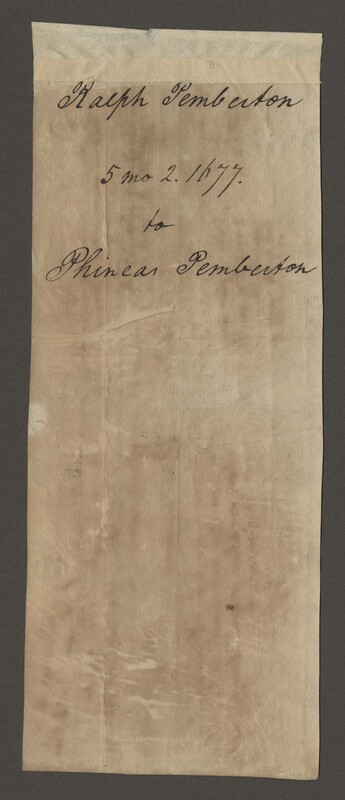 Ralph Pemberton
5 mo 2. 1677.
to
Phineas Pemberton